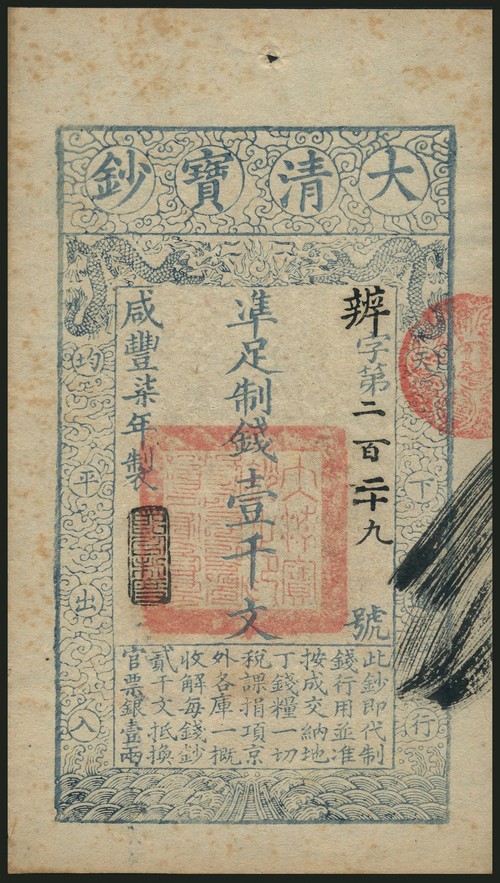 大清寶鈔
天下行
辨字第二百二十九號
凖足制錢壹千文
咸豐柒年製
均平出入
此鈔即代制
錢行用並准
按成交納地
丁錢糧一切
稅課捐項京
外各庫一概
收解每錢鈔
貳千文抵換
官票銀壹兩